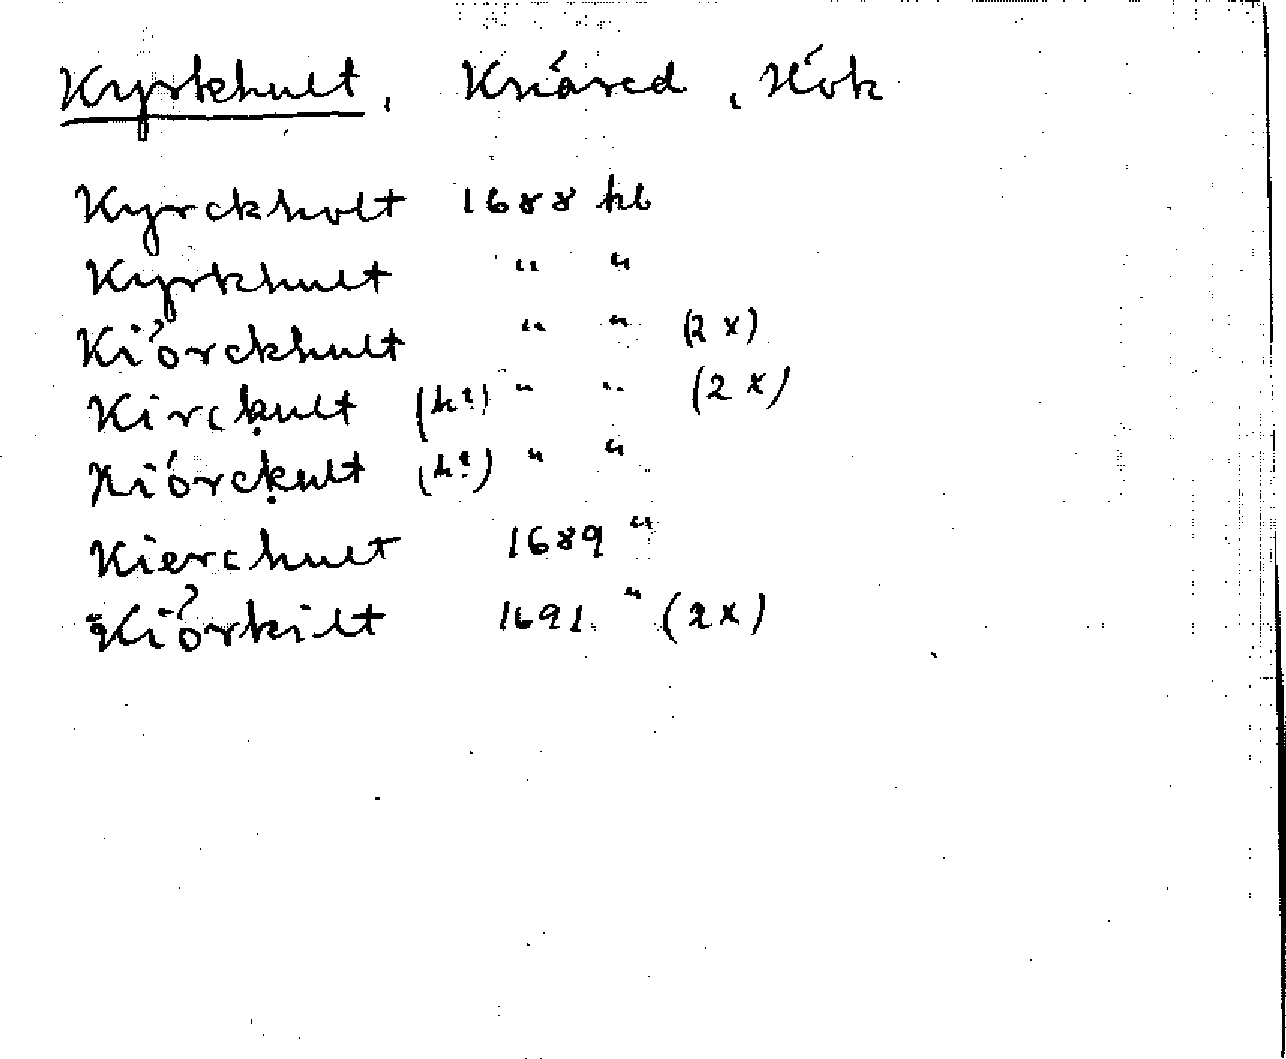 Kyrkhult, Knäred, Hök
Kyrckholt 1688 hb
Kyrkhult " "
Kiörckhult " " (2 x)
Kirckult (k?) " " (2 x)
Kiörckult (k?) " "
Kierchult 1689 "
Kiörkilt 1691 " (2x)